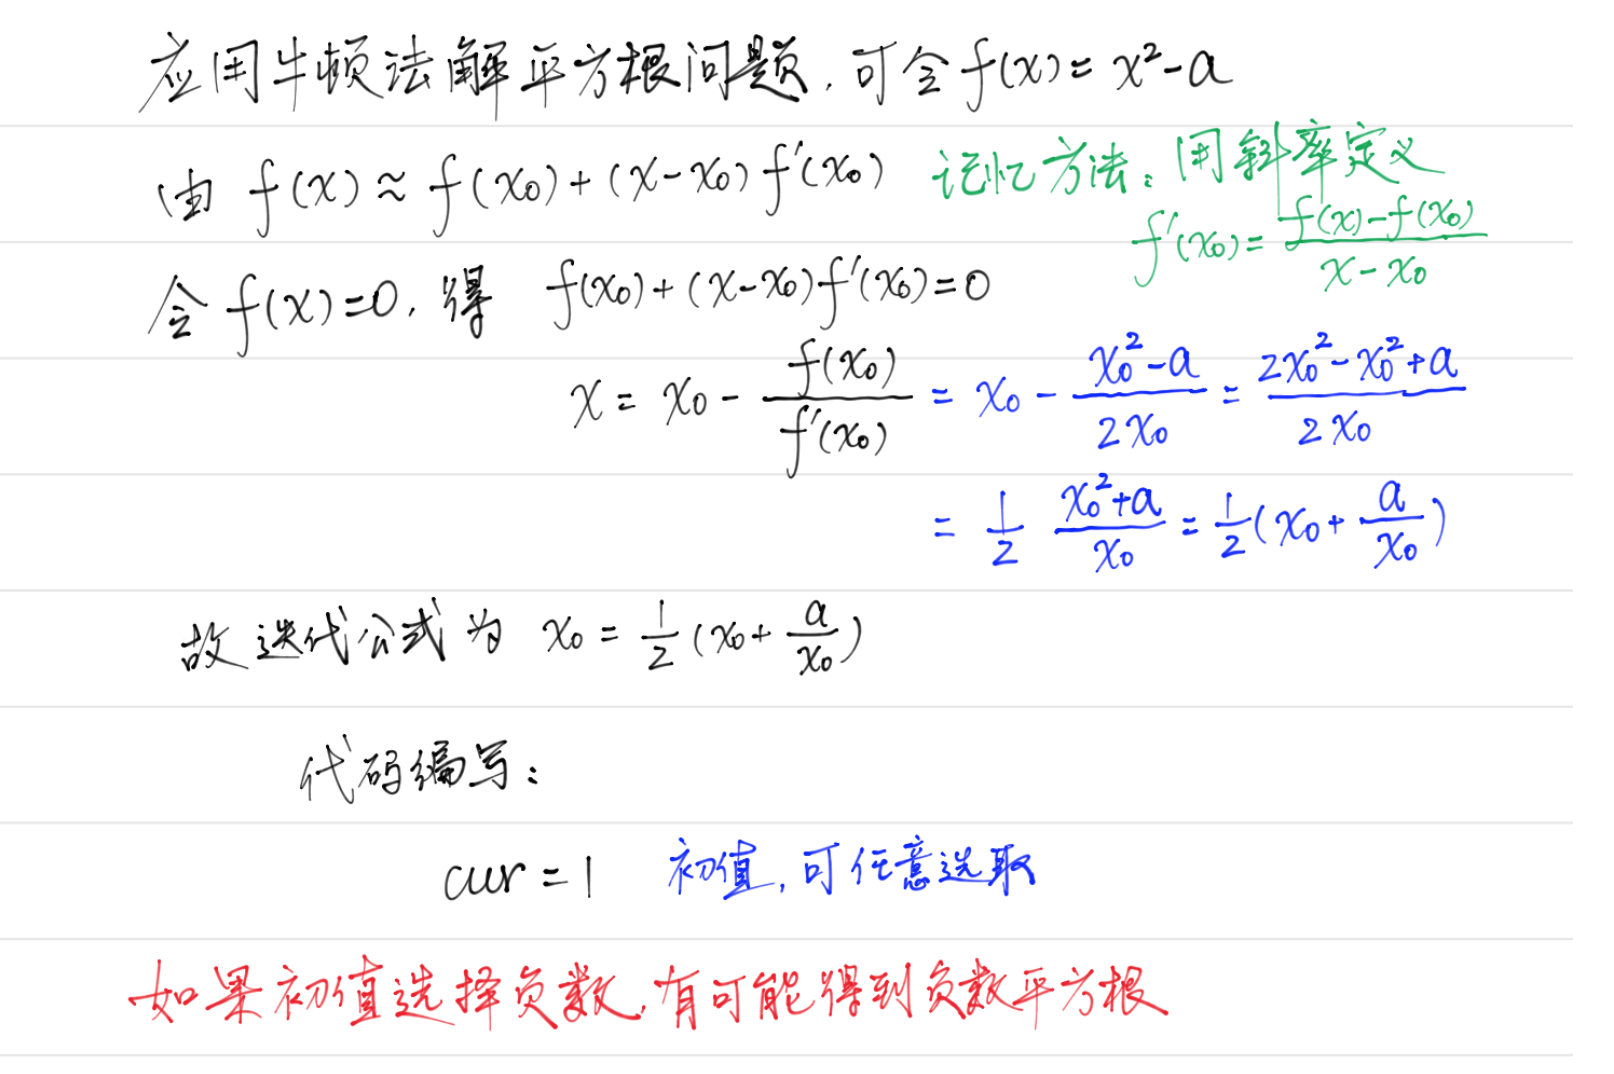 应用牛顿法解平方根问题,可令 f(x) = x² - a
由 f(x) ≈ f(x₀) + (x - x₀) f'(x₀)
记忆方法:用斜率定义
f'(x₀) = \frac{f(x) - f(x₀)}{x - x₀}
令 f(x) = 0, 得 f(x₀) + (x - x₀) f'(x₀) = 0
x = x₀ - \frac{f(x₀)}{f'(x₀)} = x₀ - \frac{x₀² - a}{2x₀} = \frac{2x₀² - x₀² + a}{2x₀}
= \frac{1}{2} \frac{x₀² + a}{x₀} = \frac{1}{2}(x₀ + \frac{a}{x₀})
故迭代公式为 x₀ = \frac{1}{2}(x₀ + \frac{a}{x₀})
代码编写:
cur = 1 初值,可任意选取
如果初值选择负数,有可能得到负数平方根